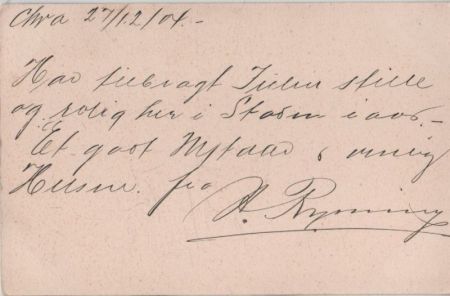 Chra 27/12/04.-
Har tilbragt Julen stille
og rolig her i Staden iaar.-
Et godt Nytaar & venlig
Hilsen. fra
H. Ryning